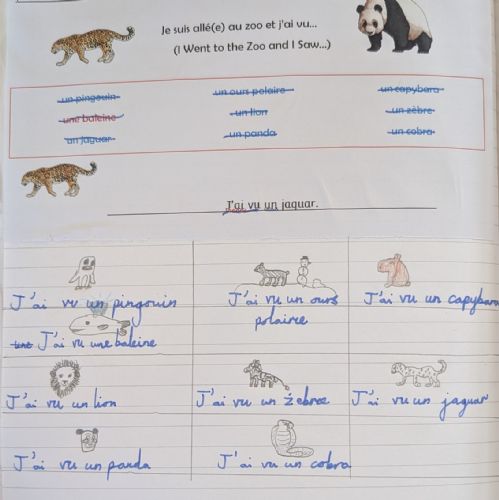 Je suis allé(e) au zoo et j'ai vu...
(I Went to the Zoo and I Saw...)
un pingouin un ours polaire un capybara
une baleine un lion un zèbre
un jaguar un panda un cobra
J'ai vu un jaguar.
J'ai vu un pingouin
J'ai vu un ours
polaire
J'ai vu un capybara
une J'ai vu une baleine
J'ai vu un lion
J'ai vu un zebre
J'ai vu un jaguar
J'ai vu un panda
J'ai vu un cobra